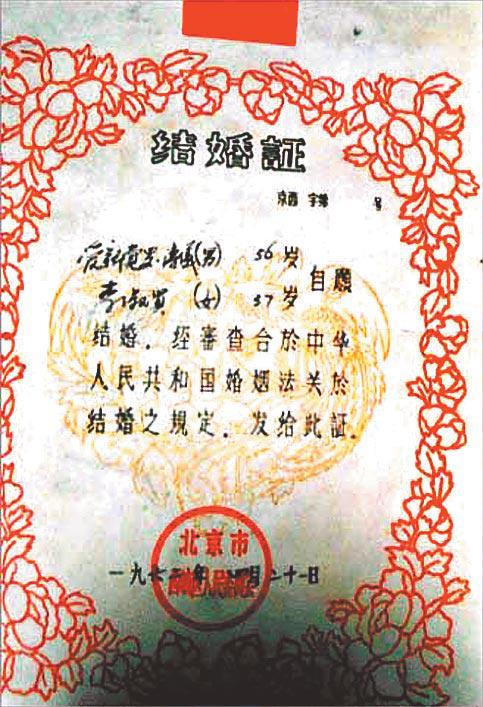 结婚証
京西 字第 号
爱新觉罗·溥仪(男) 56岁
李淑贤 (女) 37岁
自願
结婚，经審查合於中华
人民共和国婚姻法关於
结婚之規定，发给此証。
北京市
一九六二年 月二十一日